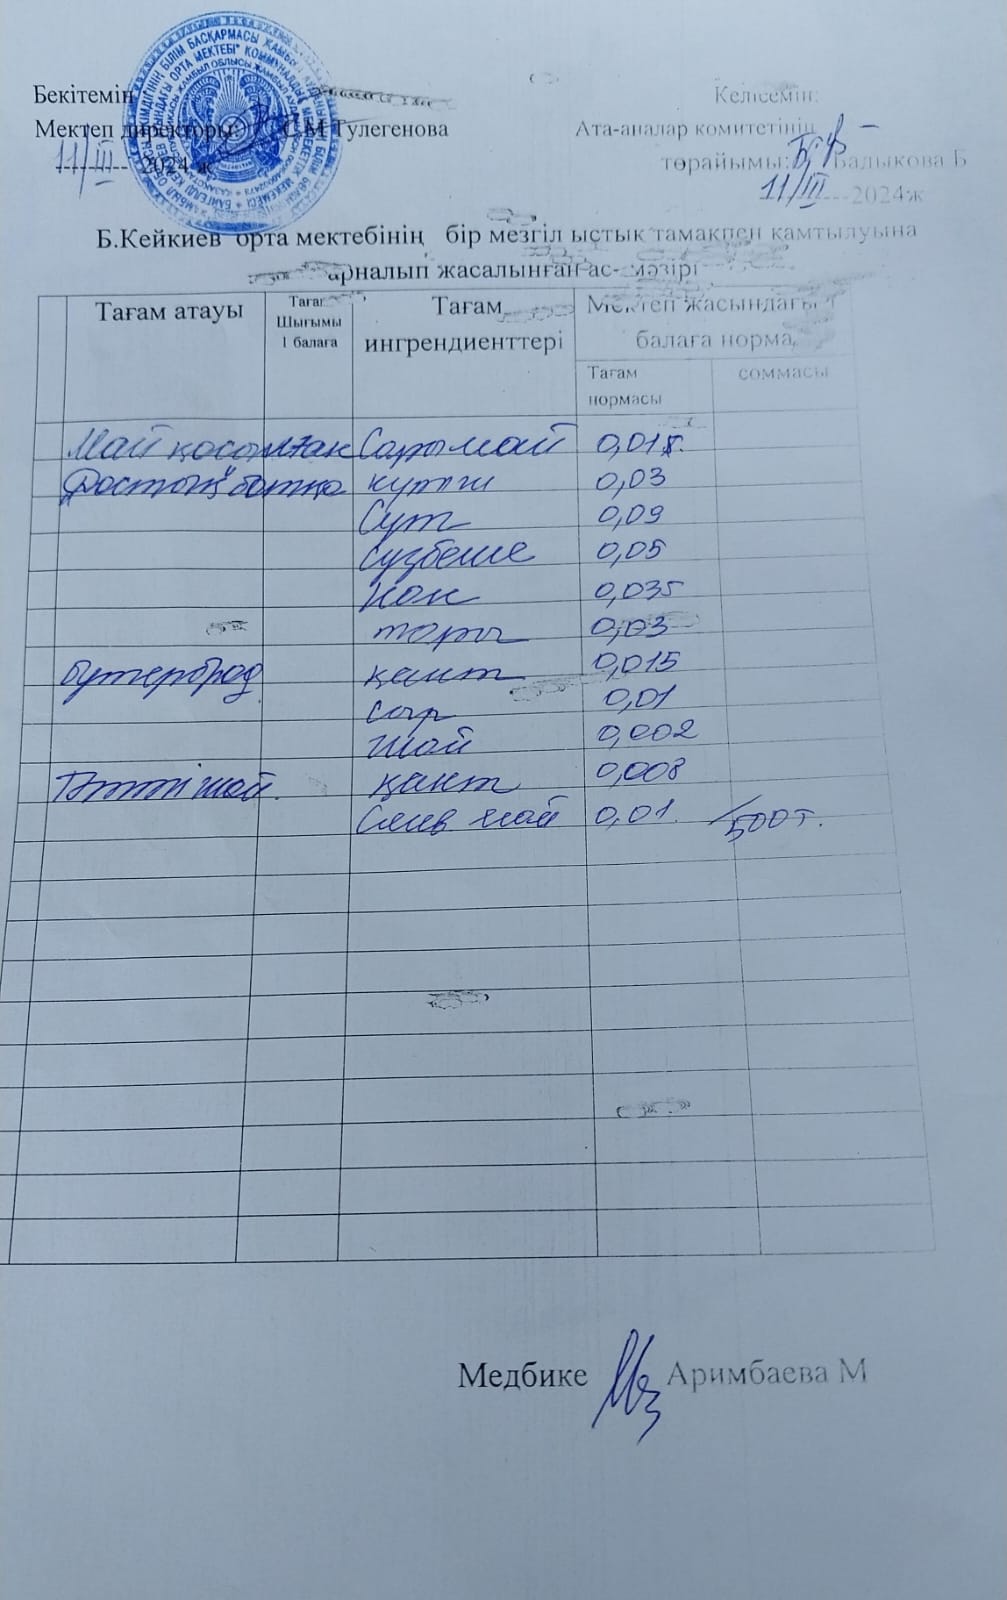 Бекітемін
Келісемін:
Мектеп директоры: С.М Тулегенова
Ата-аналар комитетінің
төрайымы: Бадыкова Б
11/III 2024 ж
11/III ---2024ж
Б.Кейкиев орта мектебінің бір мезгіл ыстық тамақпен қамтылуына
арналып жасалынған ас- мәзірі
Тағам атауы
Шығымы
1 балаға
Тағам
ингрендиенттері
Мектеп жасындағы 1
балаға норма
Тағам
нормасы
соммасы
Май қосылған Сары май 0,01г.
"Достық" ботқа күріш 0,03
Сүт 0,09
Сүзбеше 0,05
Нан 0,035
тары 0,03
бутерброд қант 0,015
сыр 0,01
шай 0,002
Тәтті шай. қант 0,008
Слив май 0,01. 500т.
Медбике Аримбаева М